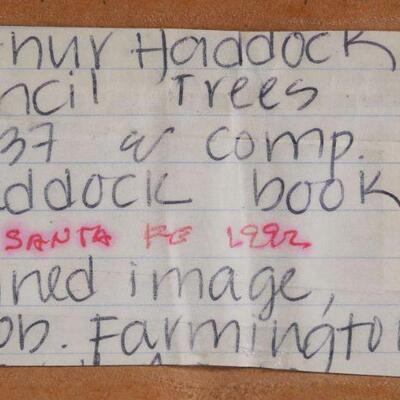 hur Haddock
ncil Trees
37 w comp.
ddock book
SANTA FE 1992
ned image,
ob. Farmington